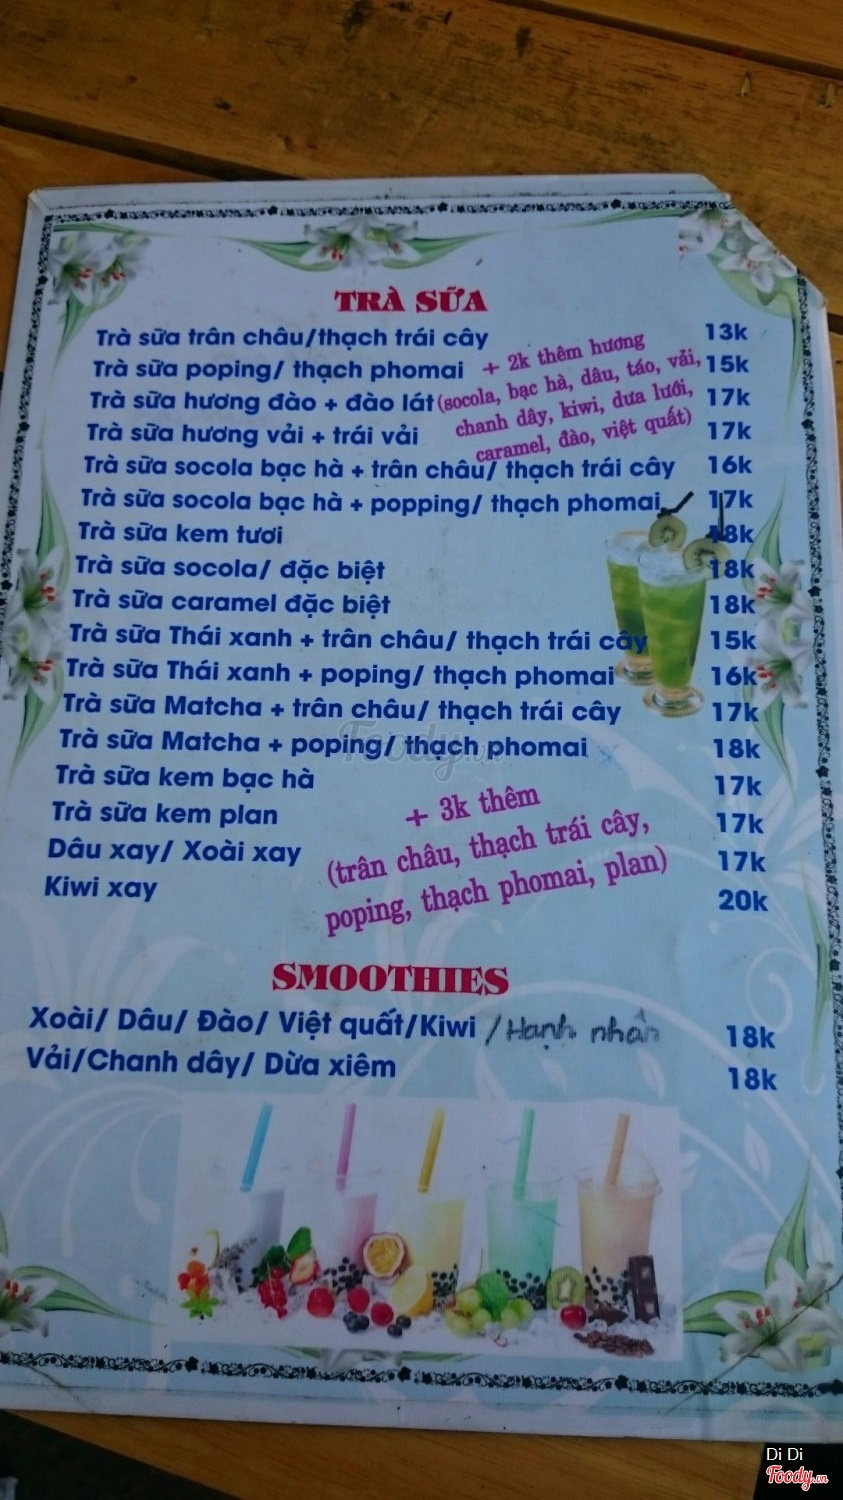 TRÀ SỮA
Trà sữa trân châu/thạch trái cây 13k
Trà sữa poping/ thạch phomai 15k
Trà sữa hương đào + đào lát 17k
Trà sữa hương vải + trái vải 17k
+ 2k thêm hương
(socola, bạc hà, dâu, táo, vải,
chanh dây, kiwi, dưa lưới,
caramel, đào, việt quất)
Trà sữa socola bạc hà + trân châu/ thạch trái cây 16k
Trà sữa socola bạc hà + popping/ thạch phomai 17k
Trà sữa kem tươi 18k
Trà sữa socola/ đặc biệt 18k
Trà sữa caramel đặc biệt 18k
Trà sữa Thái xanh + trân châu/ thạch trái cây 15k
Trà sữa Thái xanh + poping/ thạch phomai 16k
Trà sữa Matcha + trân châu/ thạch trái cây 17k
Trà sữa Matcha + poping/ thạch phomai 18k
Trà sữa kem bạc hà 17k
Trà sữa kem plan 17k
Dâu xay/ Xoài xay 17k
Kiwi xay 20k
+ 3k thêm
(trân châu, thạch trái cây,
poping, thạch phomai, plan)
SMOOTHIES
Xoài/ Dâu/ Đào/ Việt quất/Kiwi /Hạnh nhân 18k
Vải/Chanh dây/ Dừa xiêm 18k
Foody.vn
Di Di
Foody.vn